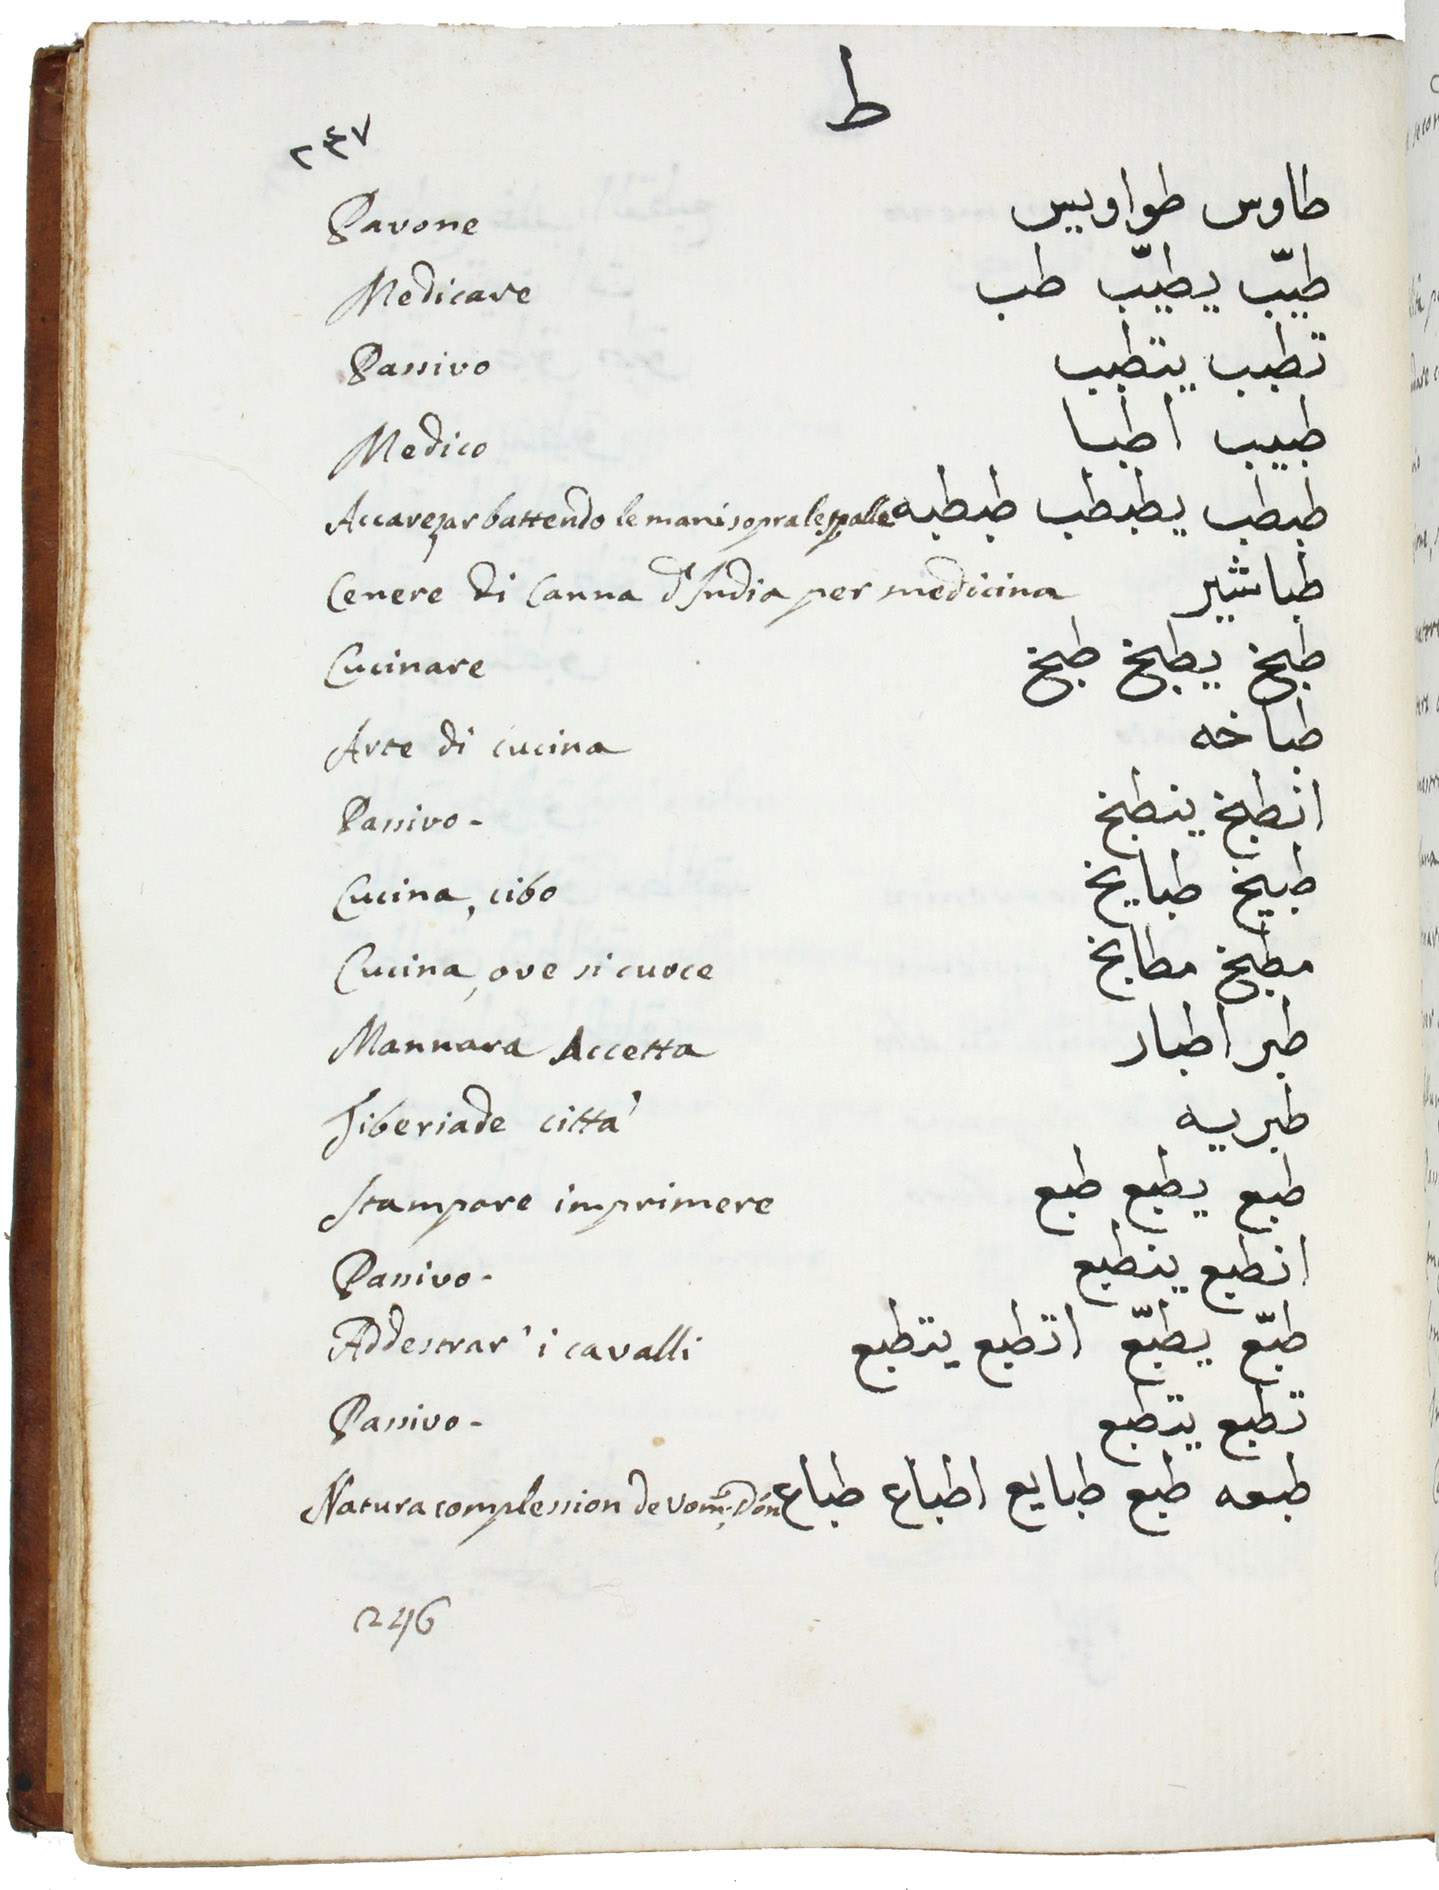 ط
٢٤٧
Pavone طاوس طواويس
Medicare طبّب يطبّب طب
Passivo تطبب يتطبب
Medico طبيب اطبا
Accarezzar battendo le mani sopra le spalle طبطب يطبطب طبطبه
Cenere di Canna d'India per medicina طباشير
Cucinare طبخ يطبخ طبخ
Arte di cucina طباخه
Passivo - انطبخ ينطبخ
Cucina, cibo طبيخ طبايخ
Cucina, ove si cuoce مطبخ مطابخ
Mannara Accetta طبر اطبار
Tiberiade città طبريه
Stampare imprimere طبع يطبع طبع
Passivo - انطبع ينطبع
Addestrar' i cavalli طبّع يطبّع اتطبع يتطبع
Passivo - تطبع يتطبع
Natura complession de طبعه طبع طبايع اطباع طباع
246